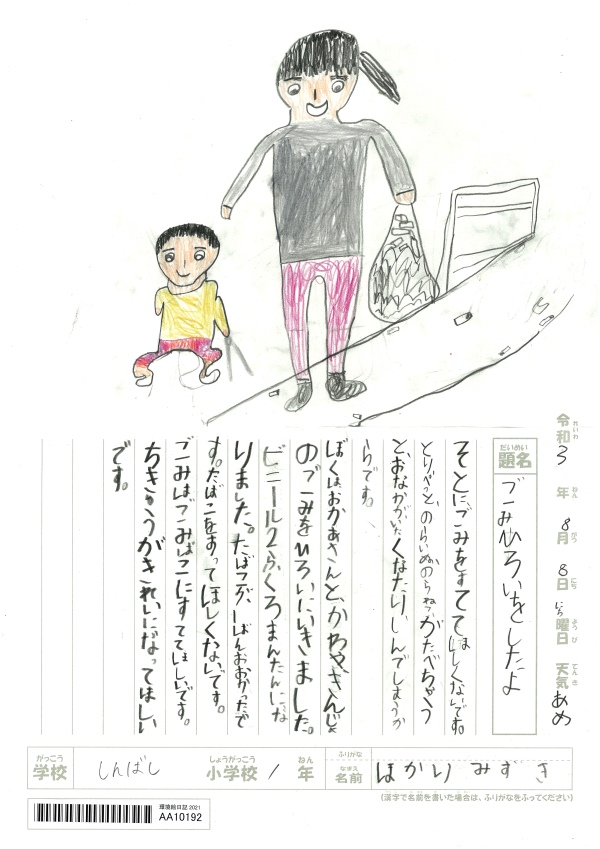 令和3年8月8日にち曜日 天気あめ
題名 ごみひろいをしたよ
そとにごみをすててほしくないです。
とりべっと、のらいぬのらねこがたべちゃう
と、おなかがいたくなたり、しんでしまうか
らです。
ぼくはおかあさんと、かわやきんじょ
のごみをひろいにいきました。
ビニール2ふくろまんたんにな
りました。たばこが、いちばんおおかったで
す。たばこをすってほしくないです。
ごみはごみばこにすててほしいです。
ちきゅうがきれいになってほしい
です。
がっこう 学校 しんばし しょうがっこう 小学校 1 ねん 年 ふりがな なまえ 名前 はかり みずき
(漢字で名前を書いた場合は、ふりがなをふってください)
環境絵日記 2021
AA10192